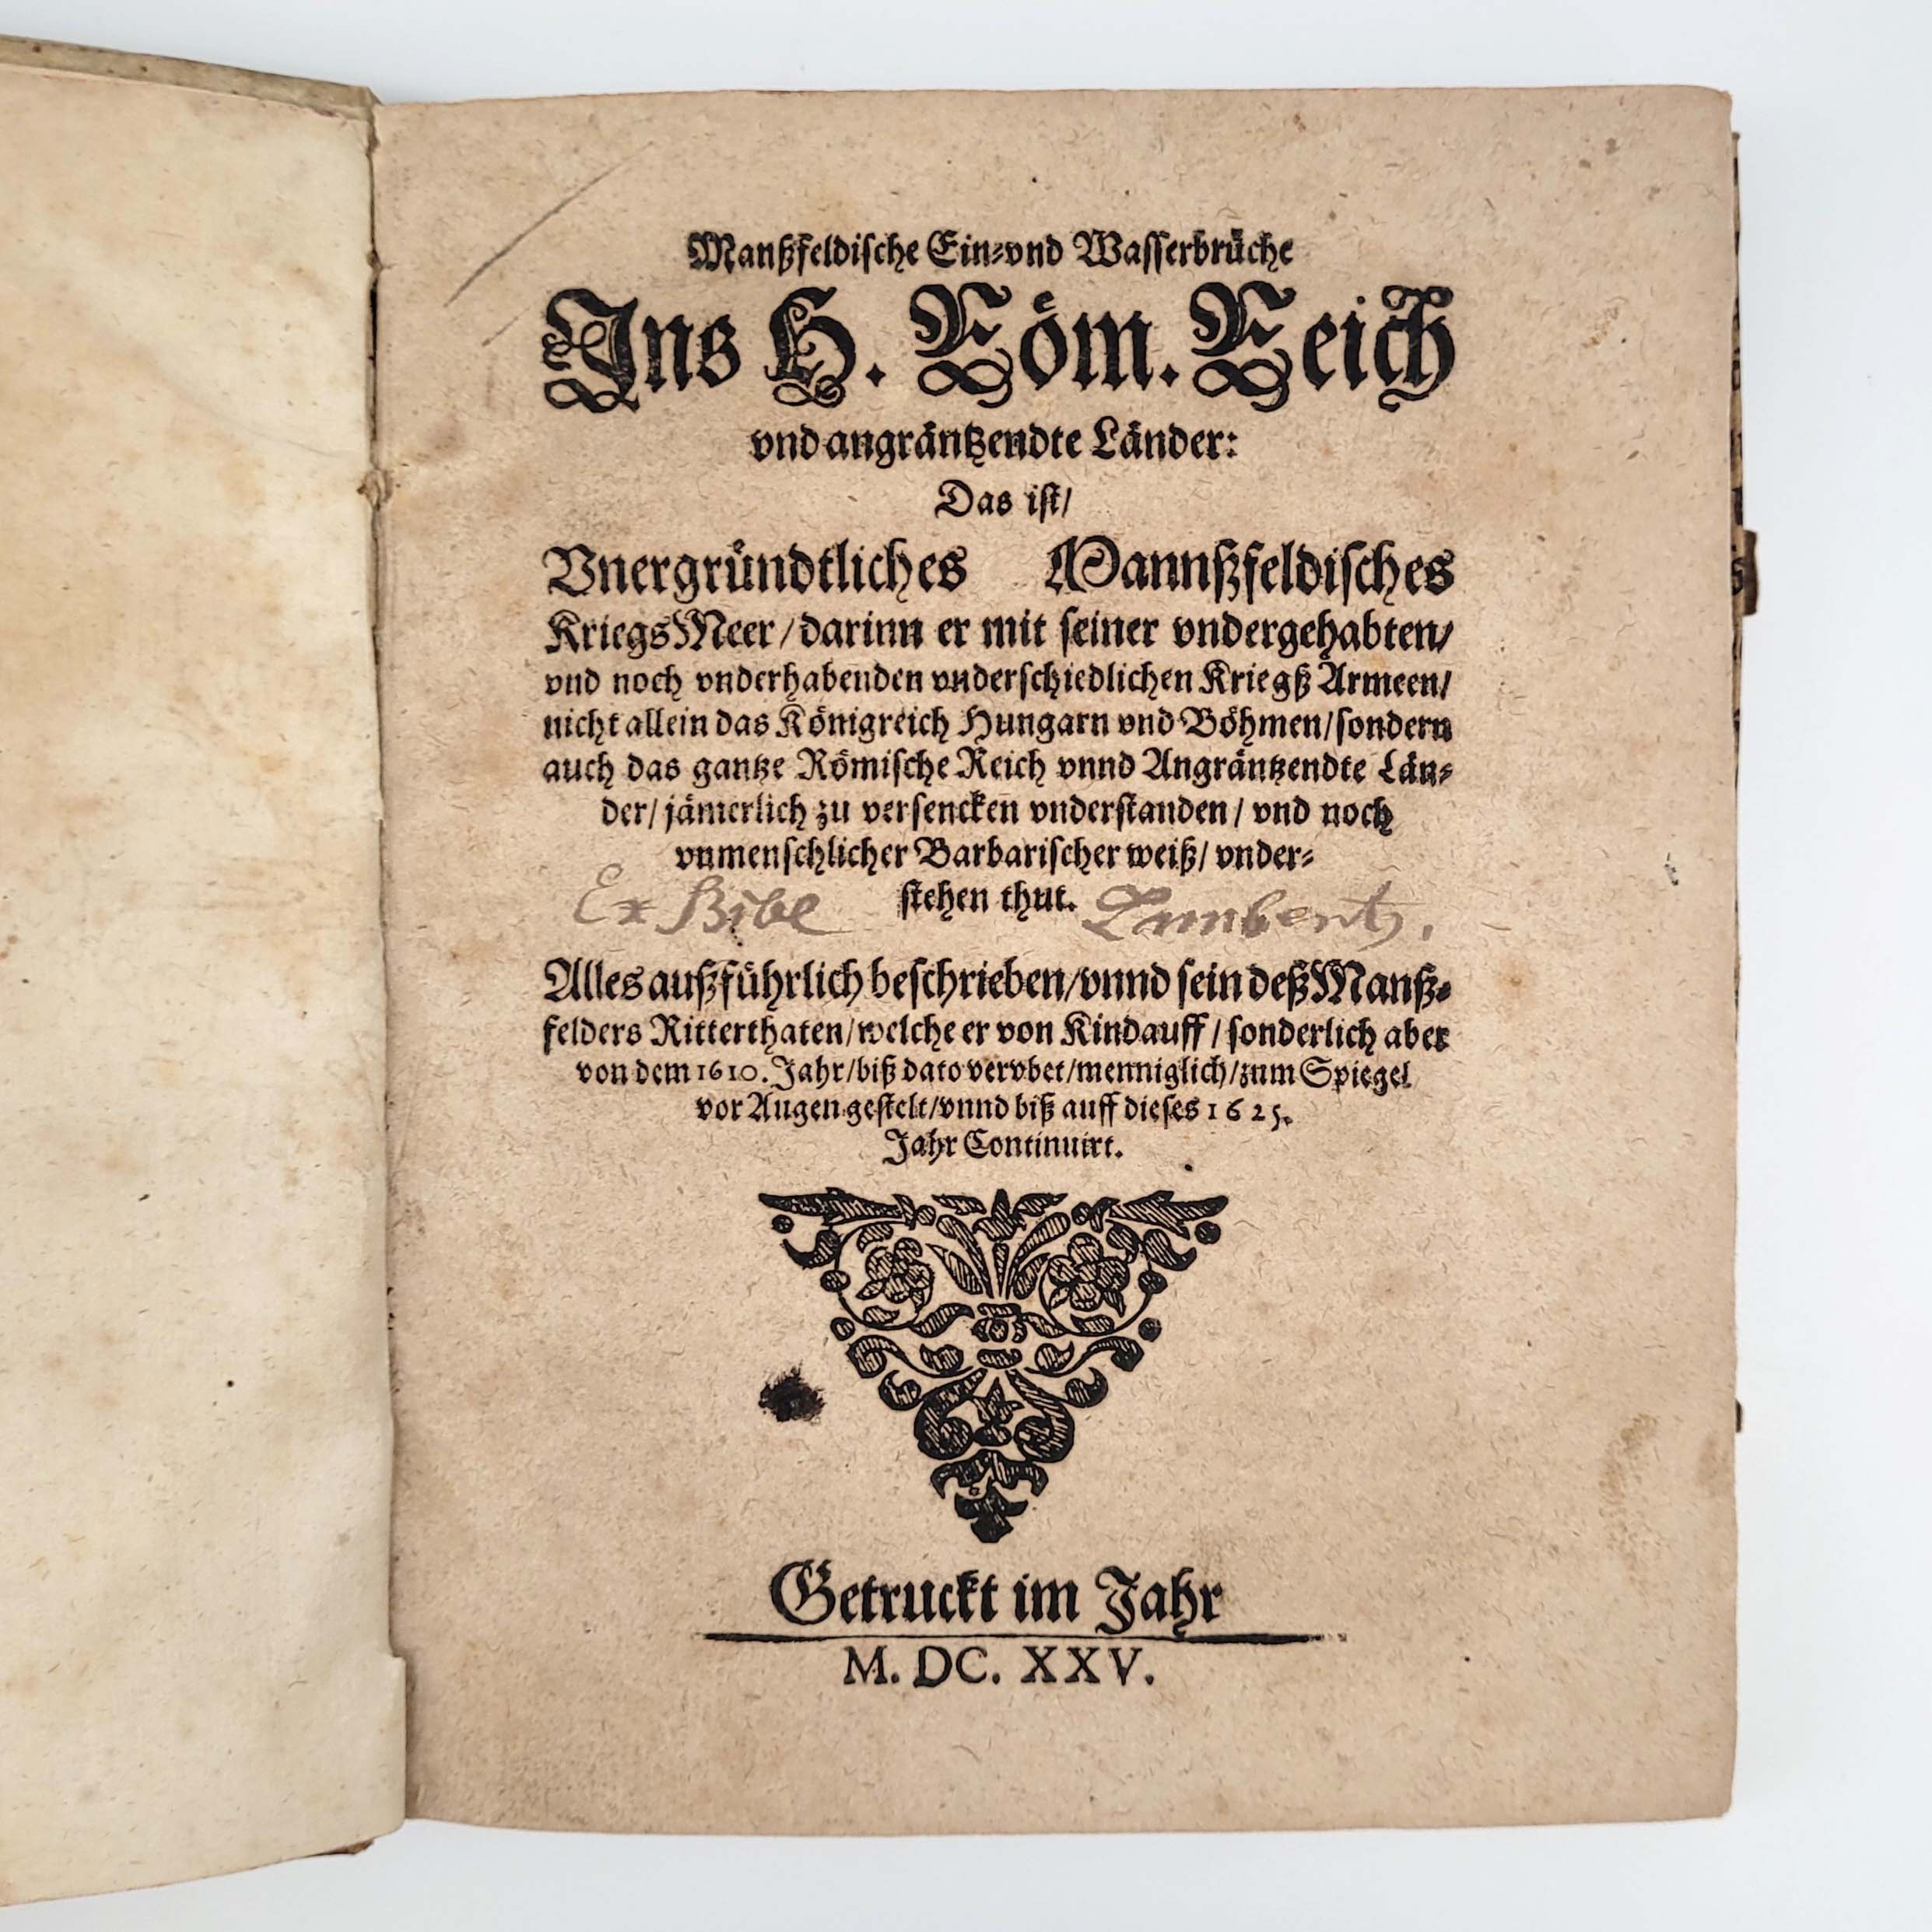 Manßfeldische Ein-vnd Wasserbrüche
Ins H. Röm. Reich
vnd angräntzendte Länder:
Das ist/
Vnergründtliches Mannßfeldisches
KriegsMeer/darinn er mit seiner vndergehabten/
vnd noch vnderhabenden vnderschiedlichen Kriegß Armeen/
nicht allein das Königreich Hungarn vnd Böhmen/sondern
auch das gantze Römische Reich vnnd Angräntzendte Län-
der/ jämerlich zu versencken vnderstanden/ vnd noch
vnmenschlicher Barbarischer weiß/ vnder-
stehen thut.
Ex Bibl Lambertz.
Alles außführlich beschrieben/vnnd sein deß Manß-
felders Ritterthaten/welche er von Kindauff/ sonderlich aber
von dem 1610. Jahr/biß dato vervbet/menniglich/zum Spiegel
vor Augen gestelt/vnnd biß auff dieses 1625.
Jahr Continuirt.
Getruckt im Jahr
M. DC. XXV.